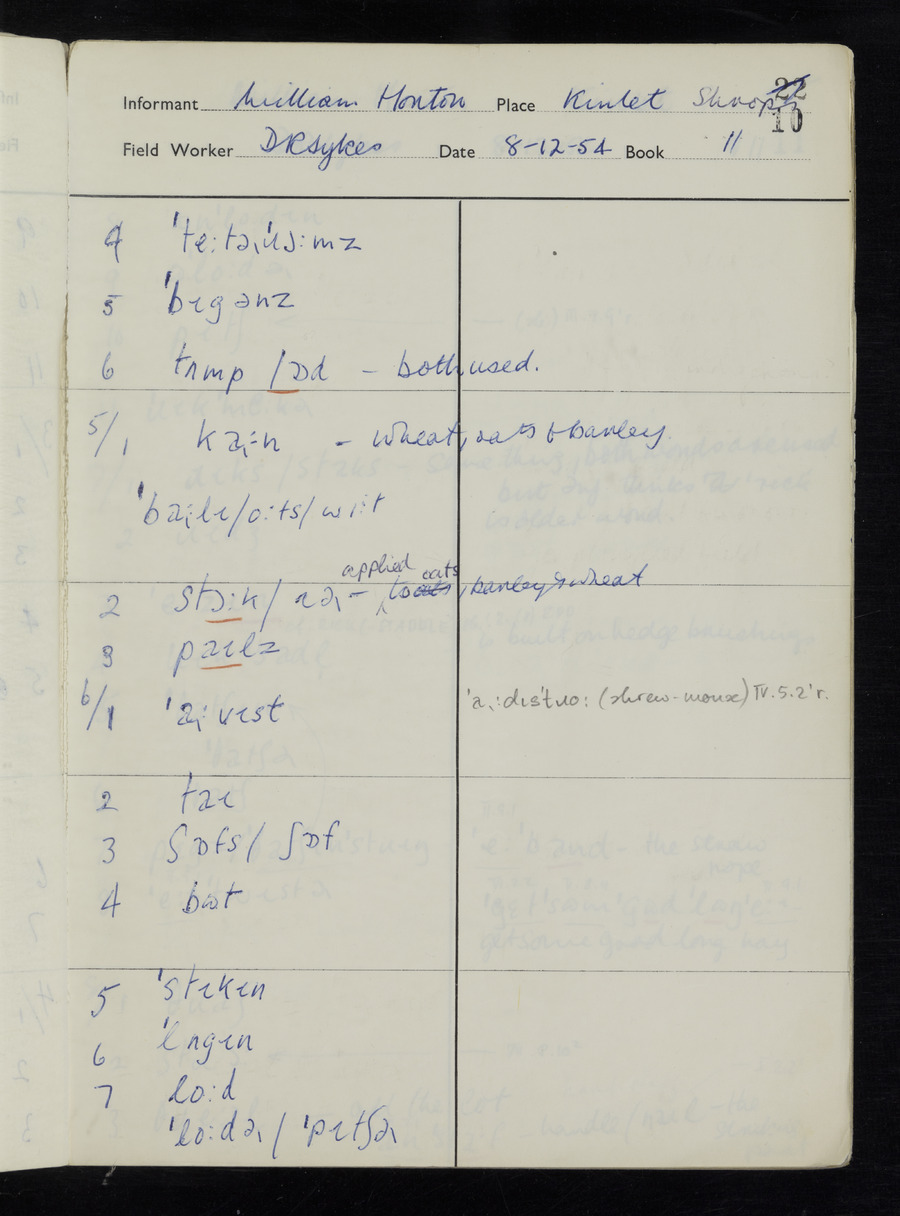 22
Informant William Honton Place Kinlet Shrops
10
Field Worker D R Sykes Date 8-12-54 Book 11
4 'te:tə˞ˌɹɔ:mz
5 'bɪgənz
6 tʌmp /ɔd - both used.
5/1 kə˞:n - wheat, oats & barley.
'ba˞:lɪ/o:ts/wi:t
applied oats
2 stɔ:k/ - to oats, barley & wheat
3 paɪlz
6/1 'a˞:vɪst (shrew-mouse) IV.5.2 r.
2 taɪ
3 ʃɒfs/ ʃɒf
4 bat
5 'stɪkɪn
6 'lʌgɪn
7 lo:d
'lo:də˞ / 'pɪtʃə˞